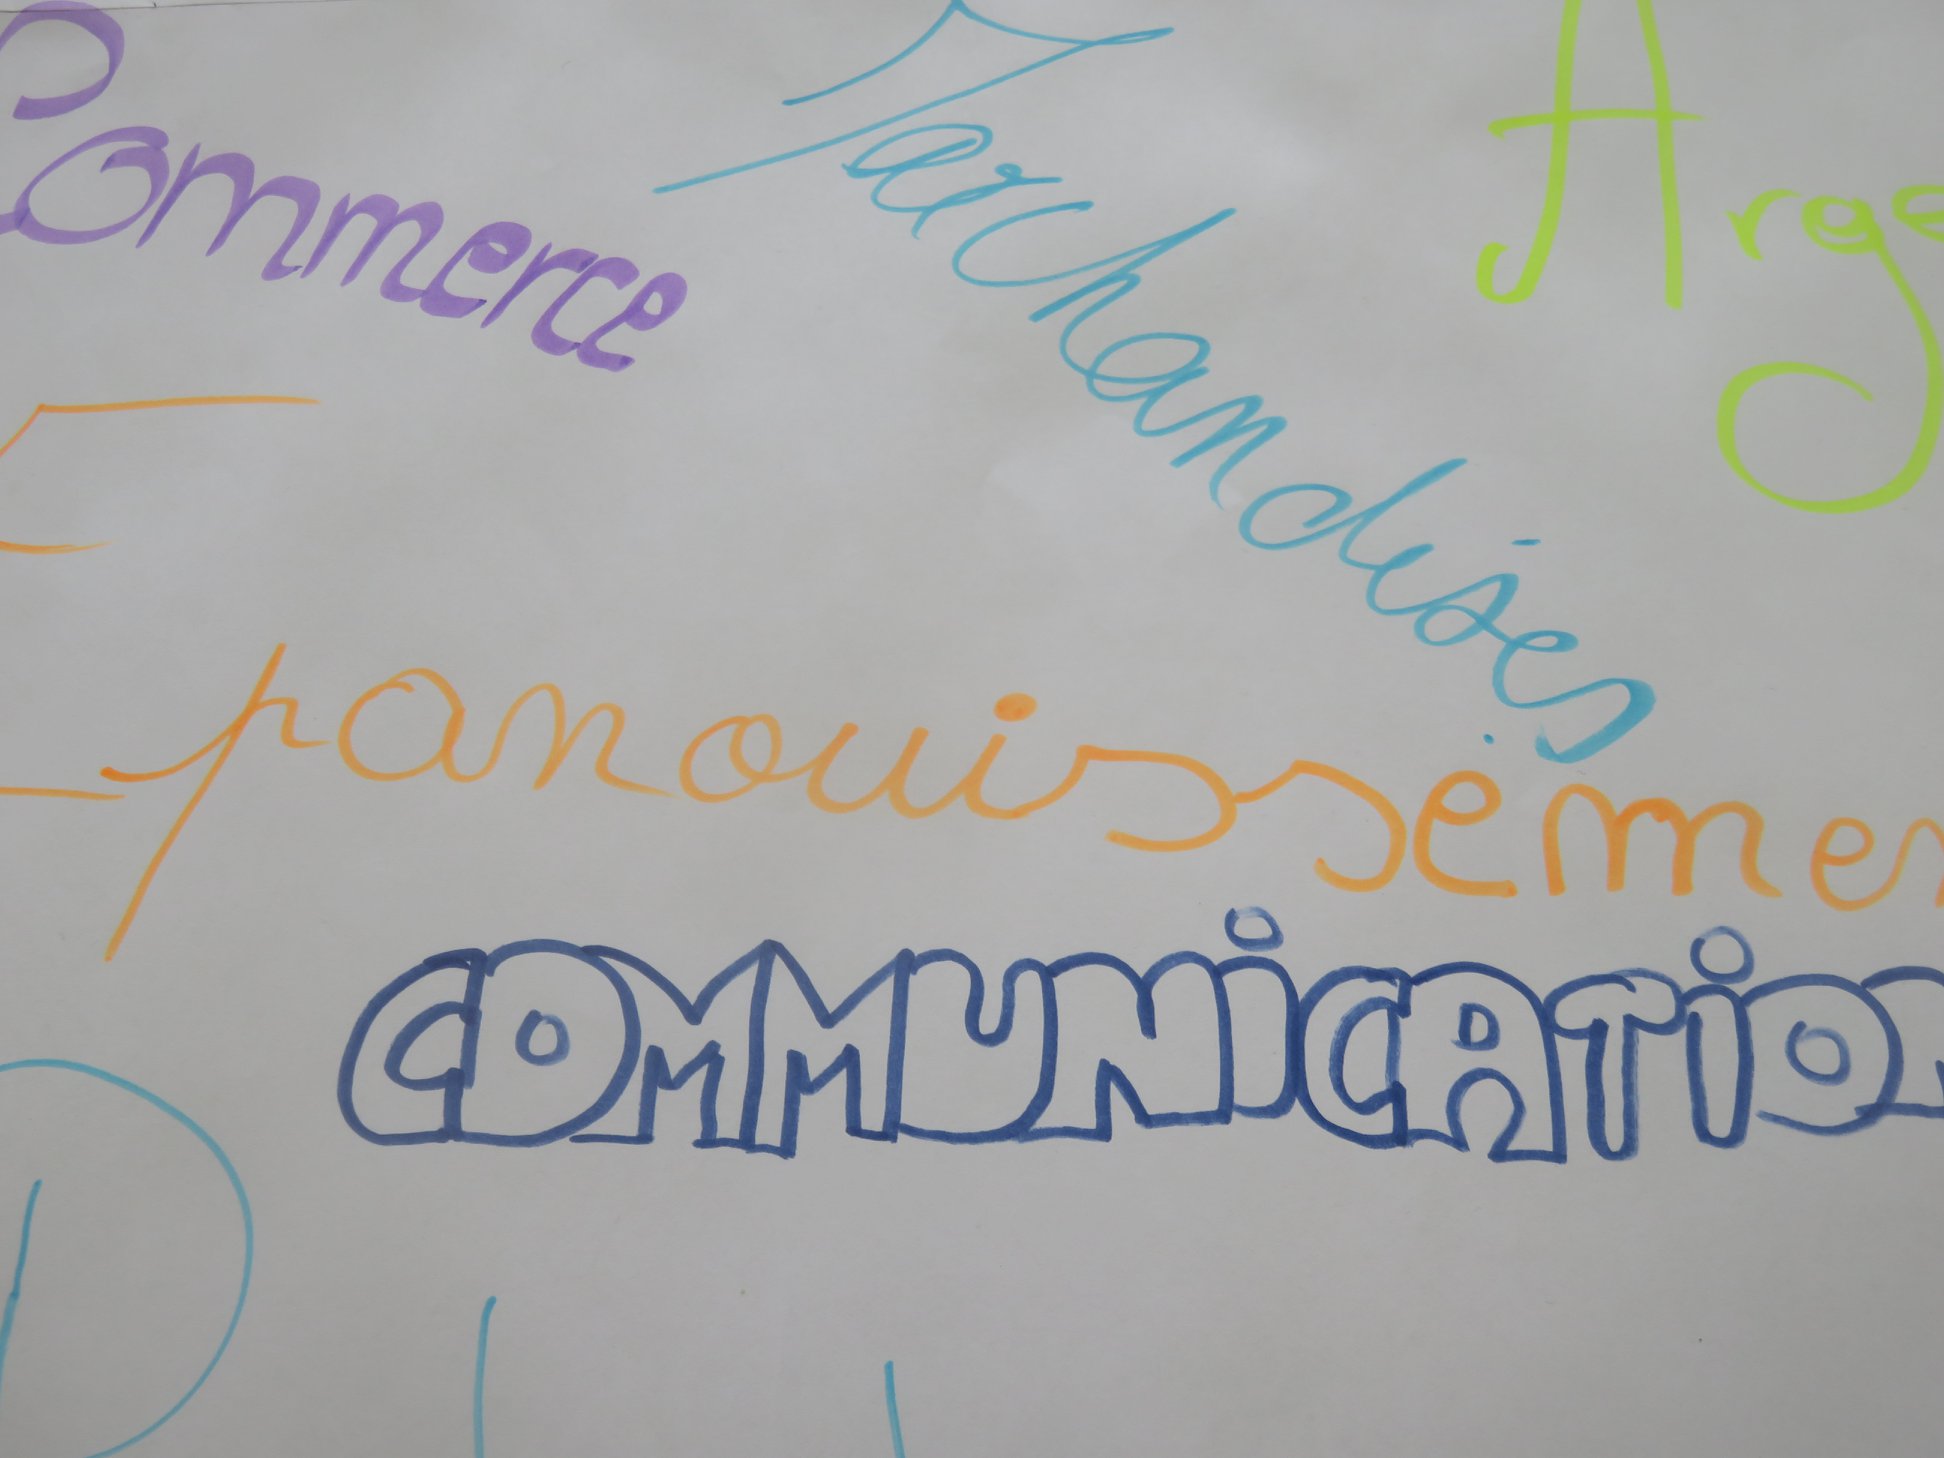 Commerce
Marchandises
Arge
Epanouissemen
COMMUNiCATiON